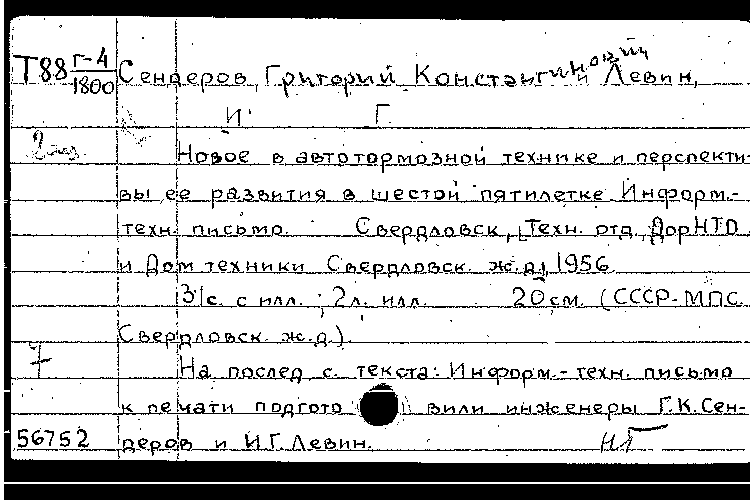 Т88 Г-4/1800 Сендеров, Григорий Константинович и Левин,
И. Г.
2 экз. Новое в автотормозной технике и перспекти-
вы ее развития в шестой пятилетке Информ.-
техн. письмо. Свердловск, Техн. отд. ДорНТО
и Дом техники Свердловск. ж.д., 1956
31с. с илл.; 2л. илл. 20см. (СССР-МПС.
Свердловск. ж.д.).
7 На послед с. текста: Информ.-техн. письмо
к печати подгото вили инженеры Г.К.Сен-
56752 деров и И.Г.Левин.